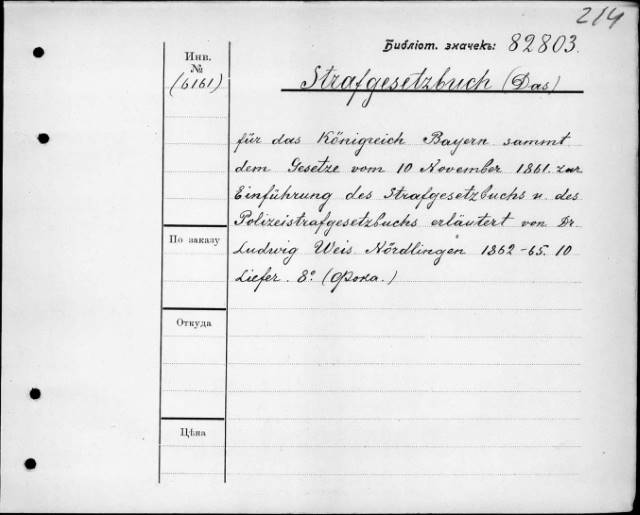 214
Библіот. значекъ: 82803.
Инв.
№
(6161)
Strafgesetzbuch (Das)
für das Königreich Bayern sammt
dem Gesetze vom 10 November 1861. zur
Einführung des Strafgesetzbuchs u. des
Polizeistrafgesetzbuchs erläutert von Dr.
Ludwig Weis Nördlingen 1862-65. 10
Liefer. 8° (Фока.)
По заказу
Откуда
Цѣна